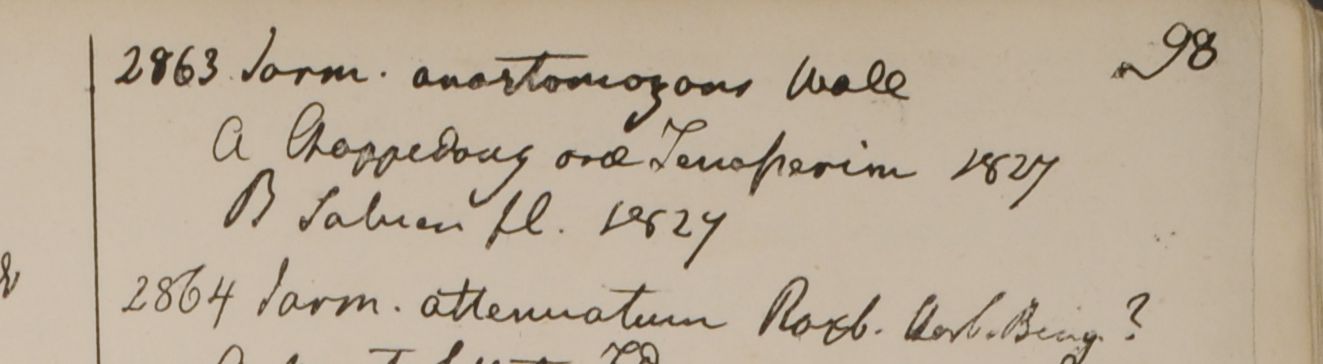 98
2863 Jasm. anastomozans Wall
A Chappedong oræ Tenasserim 1827
B Saluen fl. 1827
2864 Jasm. attenuatum Roxb. Herb. Beng.?